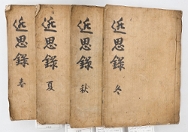 近思錄 春
近思錄 夏
近思錄 秋
近思錄 冬